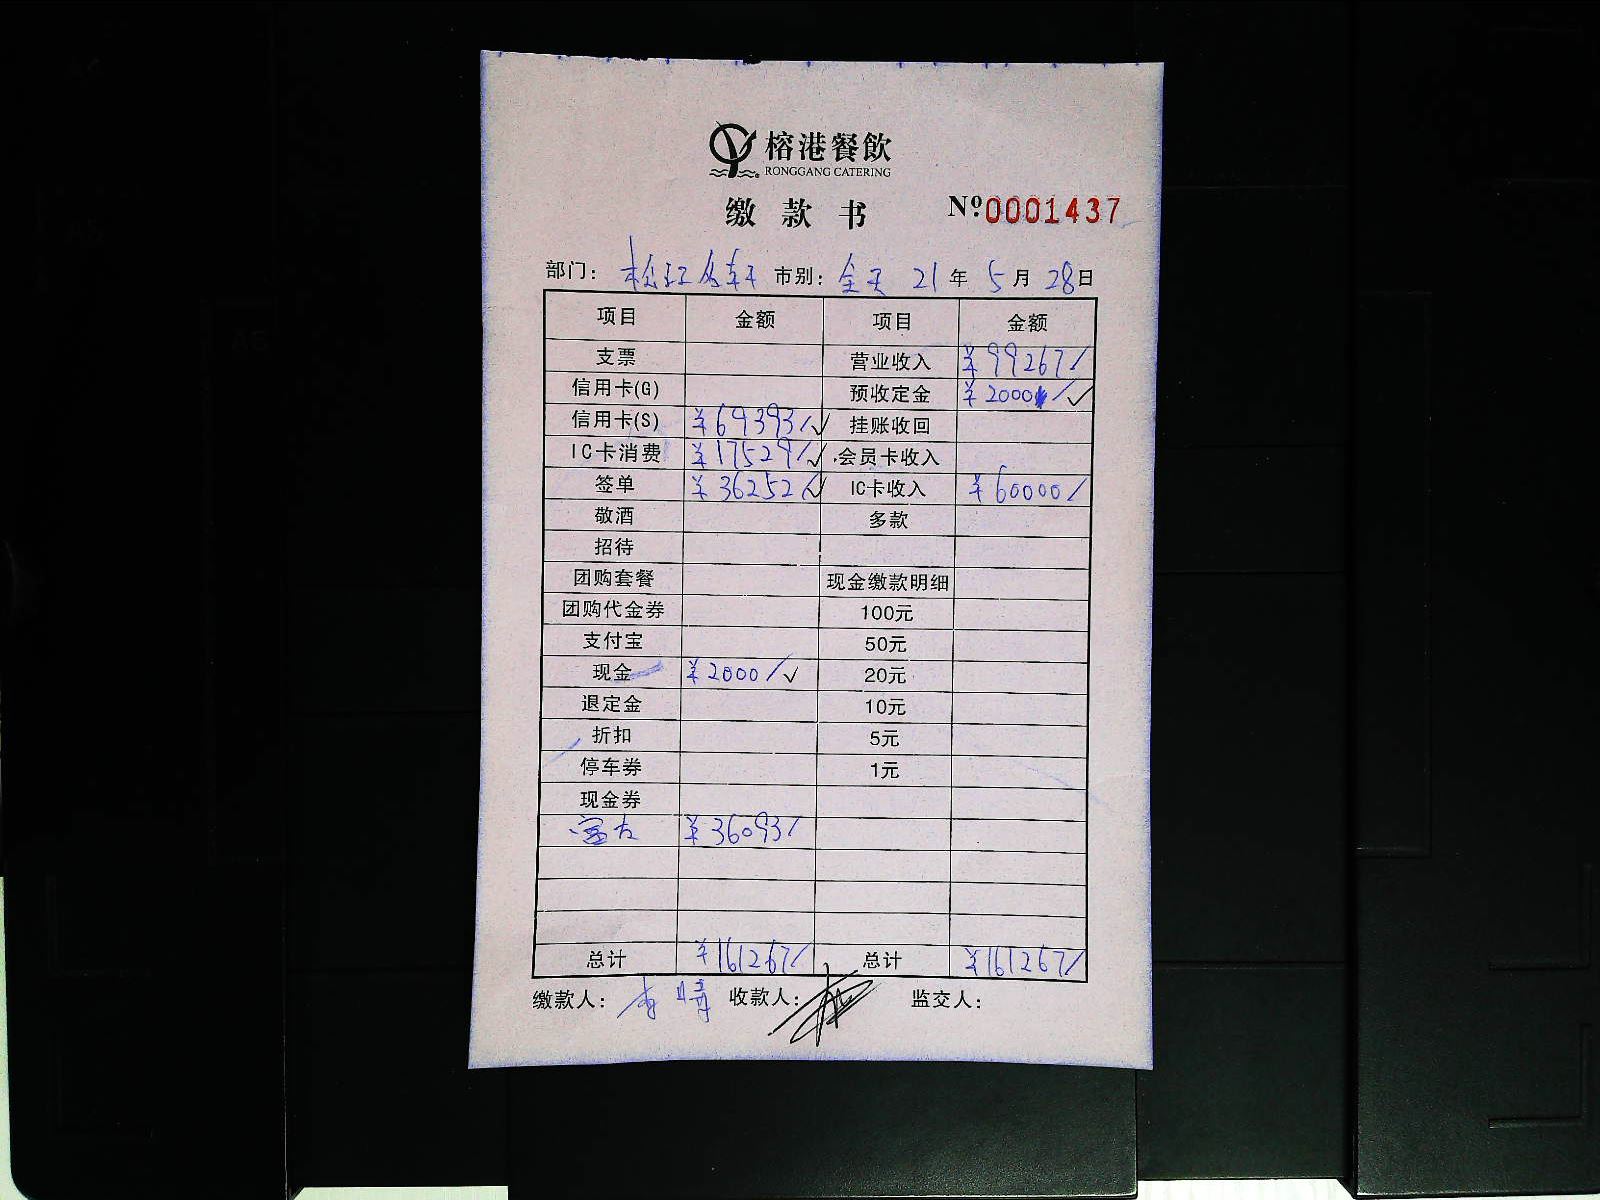 榕港餐飲
RONGGANG CATERING
缴款书 Nº0001437
部门: 松江名轩 市别: 全天 21年 5月 28日
项目 金额 项目 金额
支票 营业收入 ¥99267/
信用卡(G) 预收定金 ¥2000/✓
信用卡(S) ¥69393/✓ 挂账收回
IC卡消费 ¥17529/✓ 会员卡收入
签单 ¥36252/✓ IC卡收入 ¥60000/
敬酒 多款
招待
团购套餐 现金缴款明细
团购代金券 100元
支付宝 50元
现金 ¥2000/✓ 20元
退定金 10元
折扣 5元
停车券 1元
现金券
¥36093/
总计 ¥161267/ 总计 ¥161267/
缴款人: 收款人: 监交人: